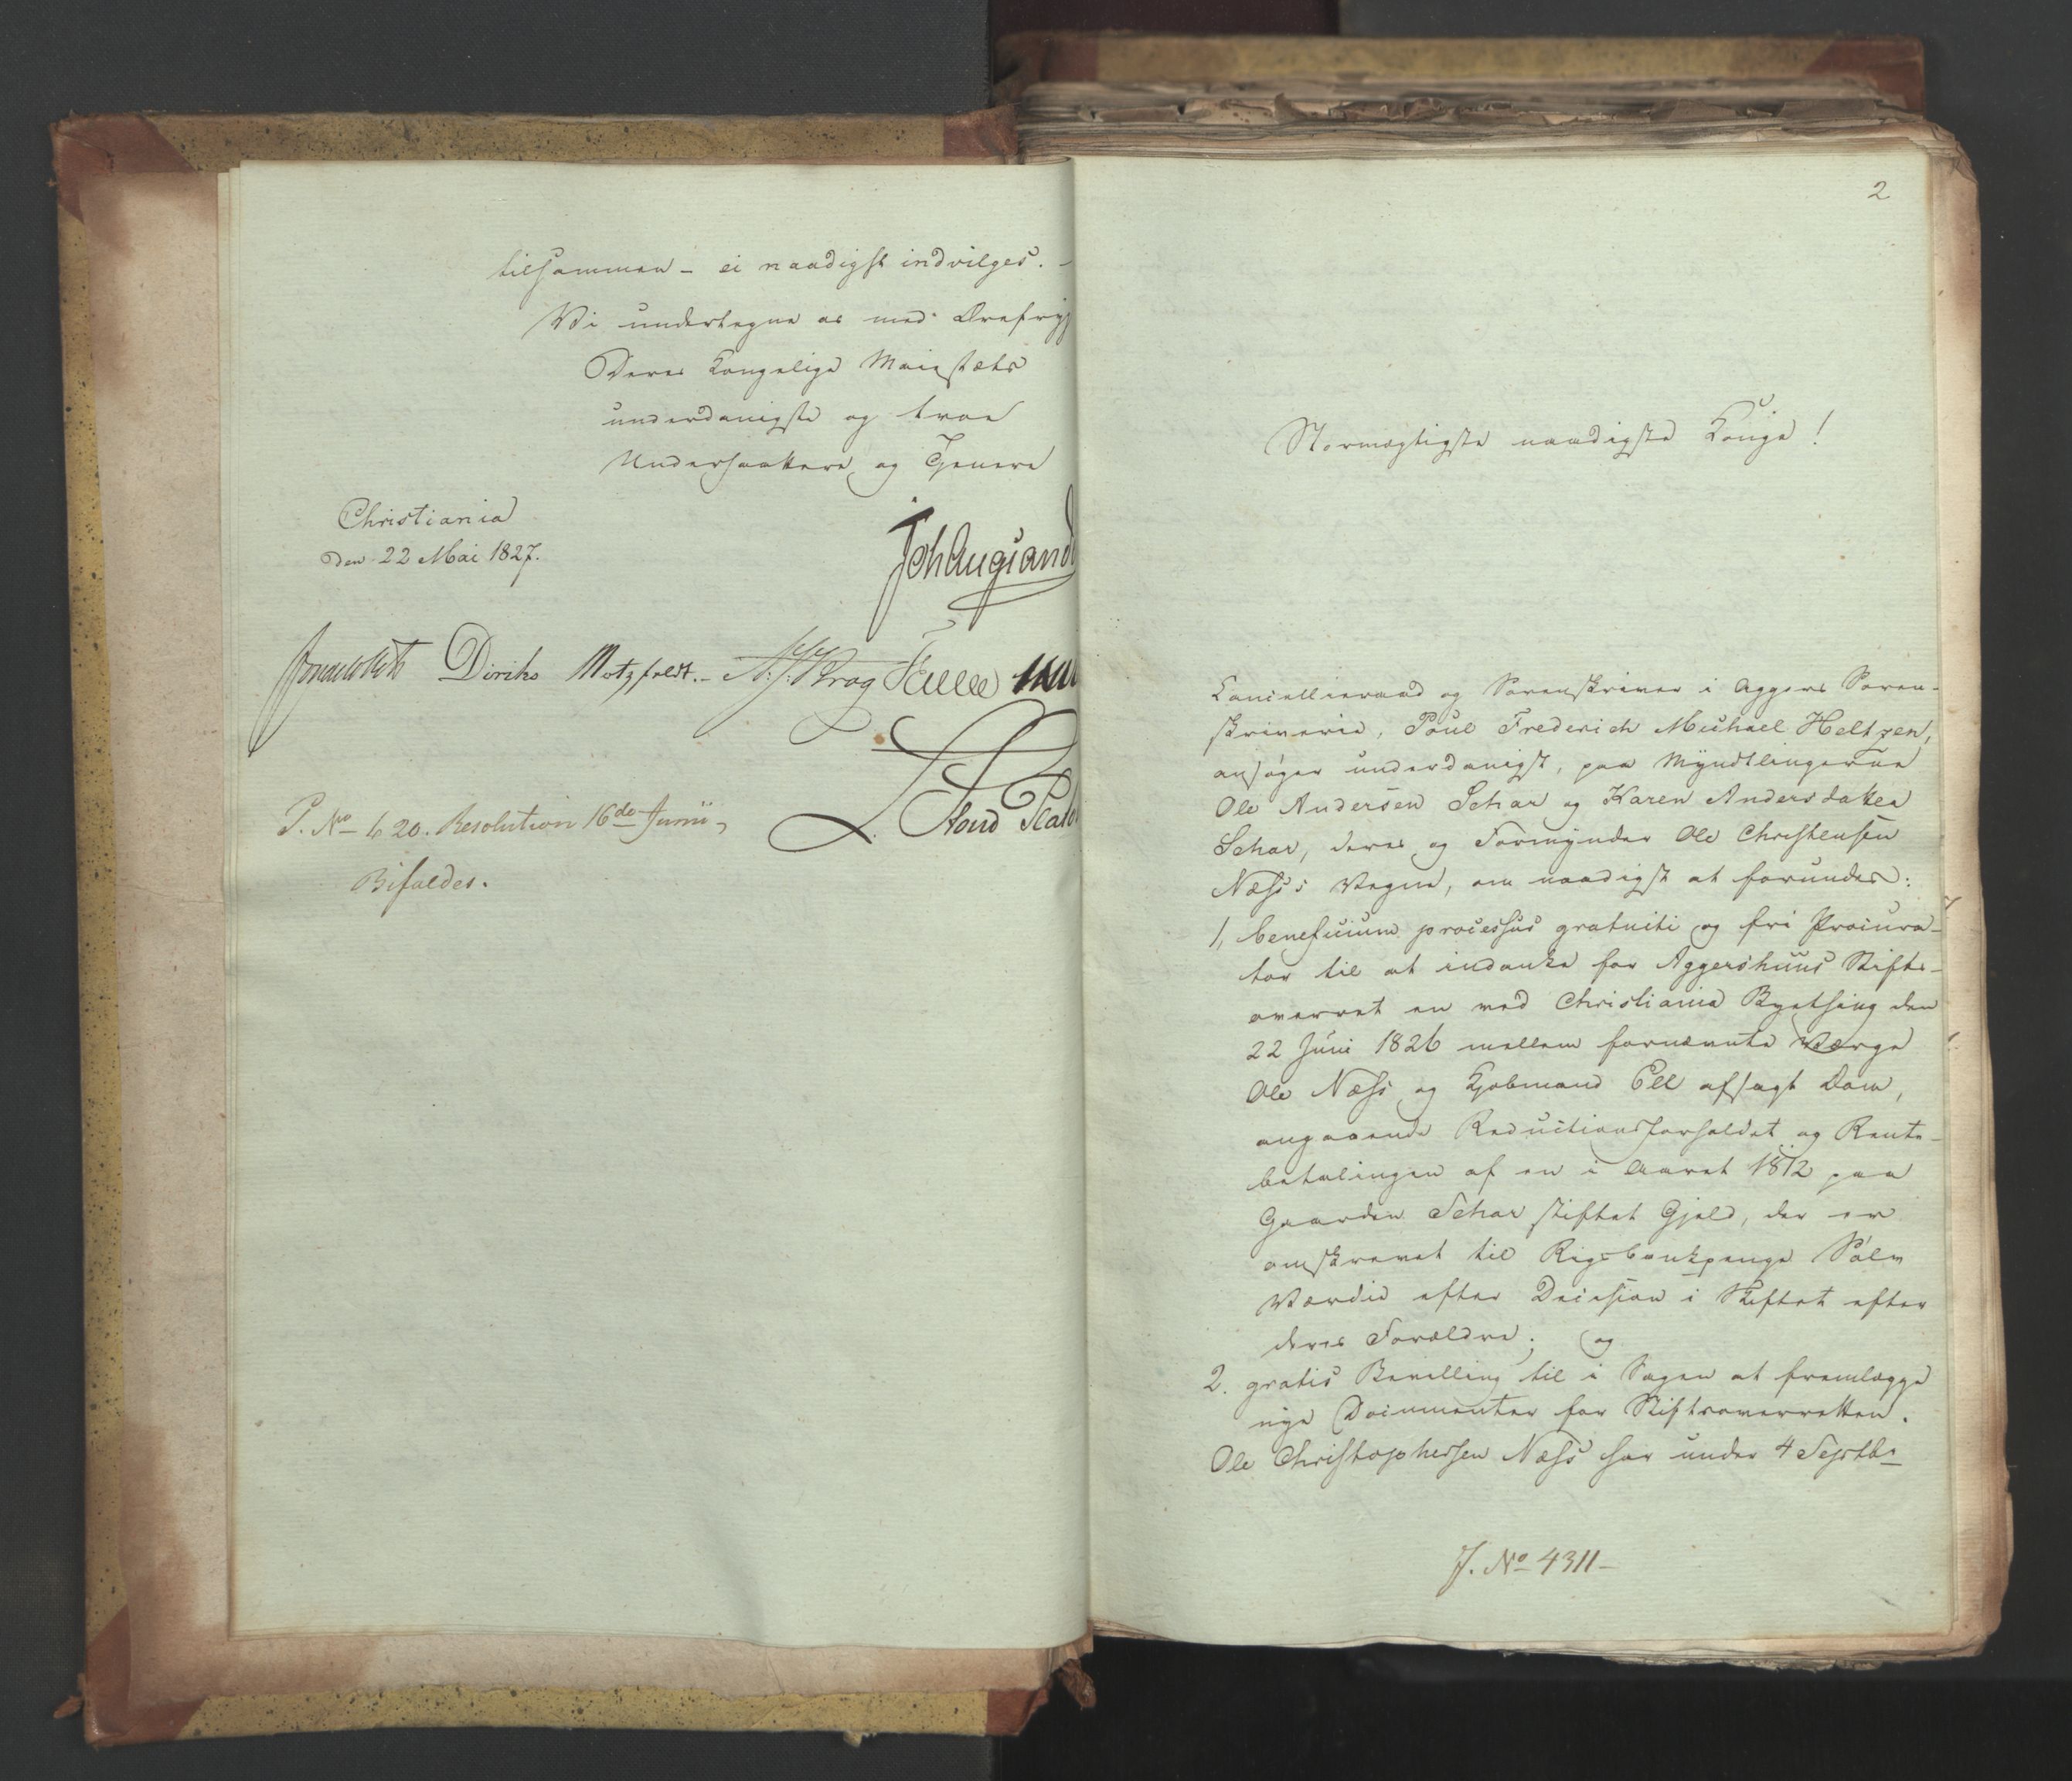 tilsammen – ei naadigst indvilges. –
Vi undertegne os med Ærefrygt
Deres Kongelige Maiestæts
underdanigste og troe
Undersaattere og Tjenere
Christiania
den 22 Mai 1827.
Joh Aug Sand
Diriks Motzfeldt. – Krog Falsen
P. No 420. Resolution 16de Junii,
Bifaldes.
2
Stormægtigste naadigste Konge!
Cancellieraad og Sorenskriver i Aggers Soren-
skriverie, Poul Frederich Michael Heltzen,
ansøger underdanigst, paa Myndtlingerne
Ole Andersen Schar og Karen Andersdatter
Schar, deres og Formynder Ole Christensen
Næss's Vegne, om naadigst at forundes:
1, beneficium processus gratuiti og fri Procura-
tor til at indanke for Aggershuus Stifts-
overret en ved Christiania Byething den
22 Juni 1826 mellem fornævnte Værge
Ole Næss og Kjøbmand Ell afsagt Dom,
angaaende Reductionsforholdet og Rente-
betalingen af en i Aaret 1812 paa
Gaarden Schar stiftet Gjeld, der er
omskrevet til Rigsbankpenge Sølv
Værdie efter Decision i Skiftet efter
deres Forældre; og
2. gratis Bevilling til i Sagen at fremlægge
nye Documenter for Stiftsoverretten.
Ole Christophersen Næss har under 4 Septbr
J. No 4311 –